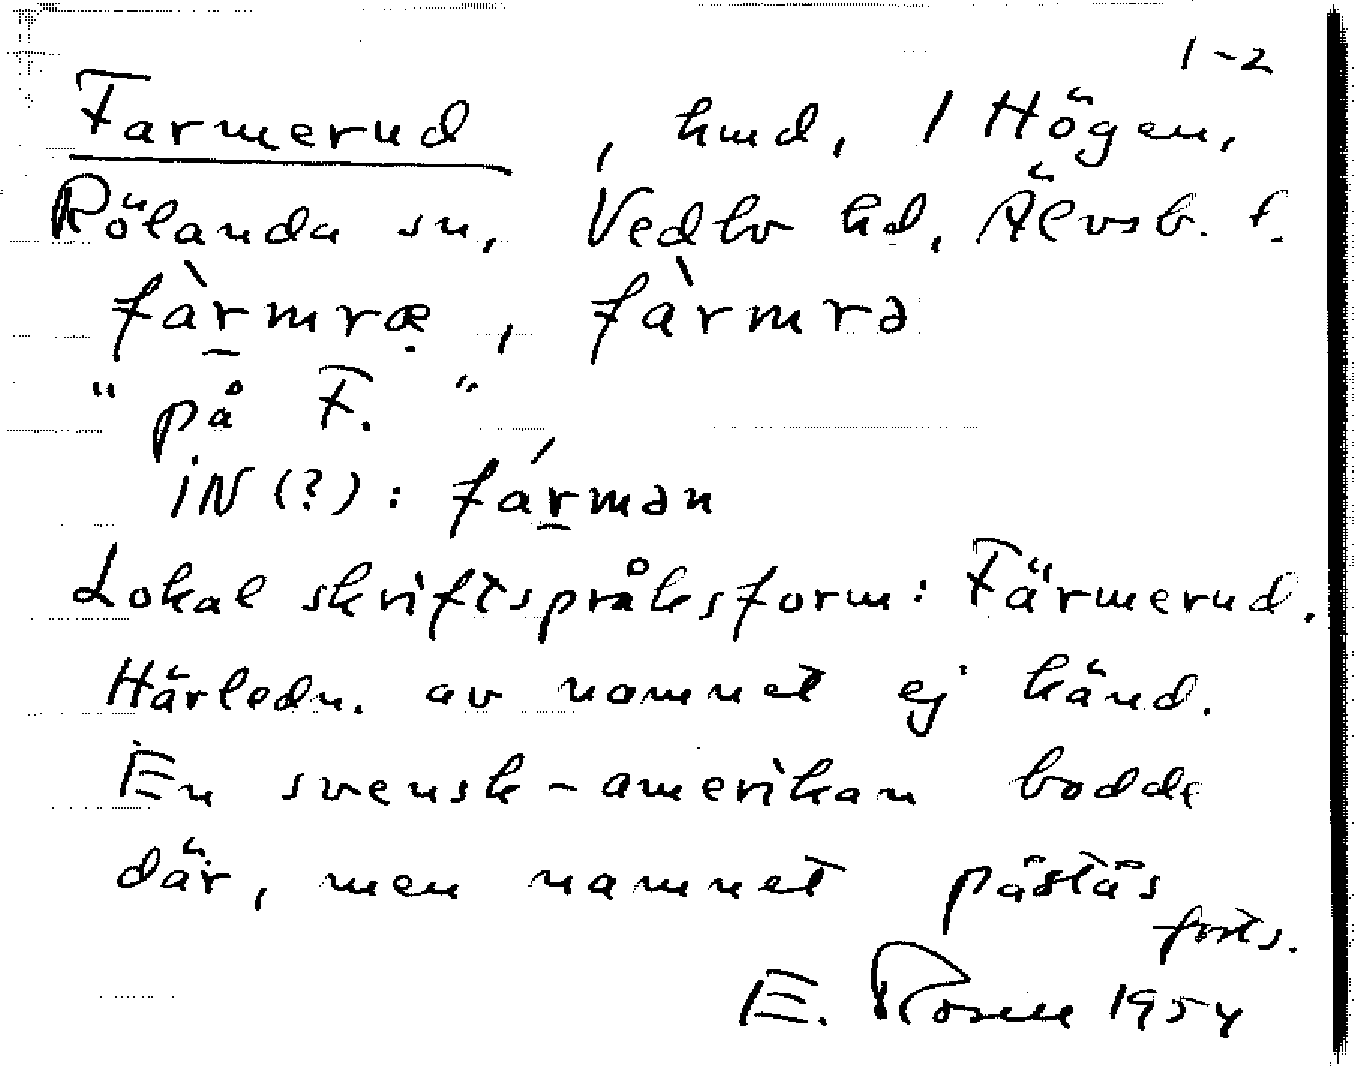 1-2
Farmerud, hmd, 1 Högen,
Rölanda sn, Vedbo hd, Älvsb. l.
fàrmræ, fàrmrə
"på F."
iN (?): fármən
Lokal skriftspråksform: Färmerud.
Härledn. av namnet ej känd.
En svensk-amerikan bodde
där, men namnet påstås
forts.
E. Rosell 1954